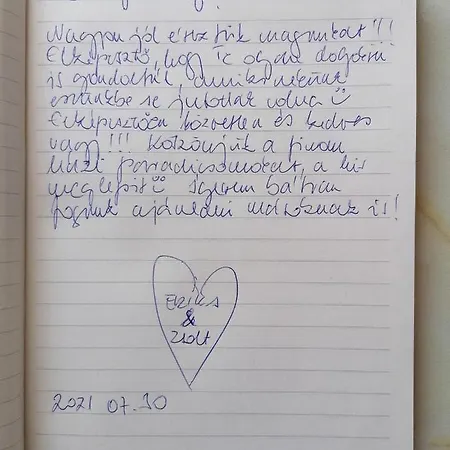 Nagyon jól éreztük magunkat!!!
Elképesztő, hogy Te olyan dolgokra
is gondoltál, ami másnak
eszünkbe se jutottak volna ü
Elképesztően közvetlen és kedves
vagy!!! Köszönjük a finom
házi paradicsomokat, a kis
meglepit ü Szívesen bátran
fogunk ajánlani másoknak is!
Erika
&
Zsolt
2021 07.30